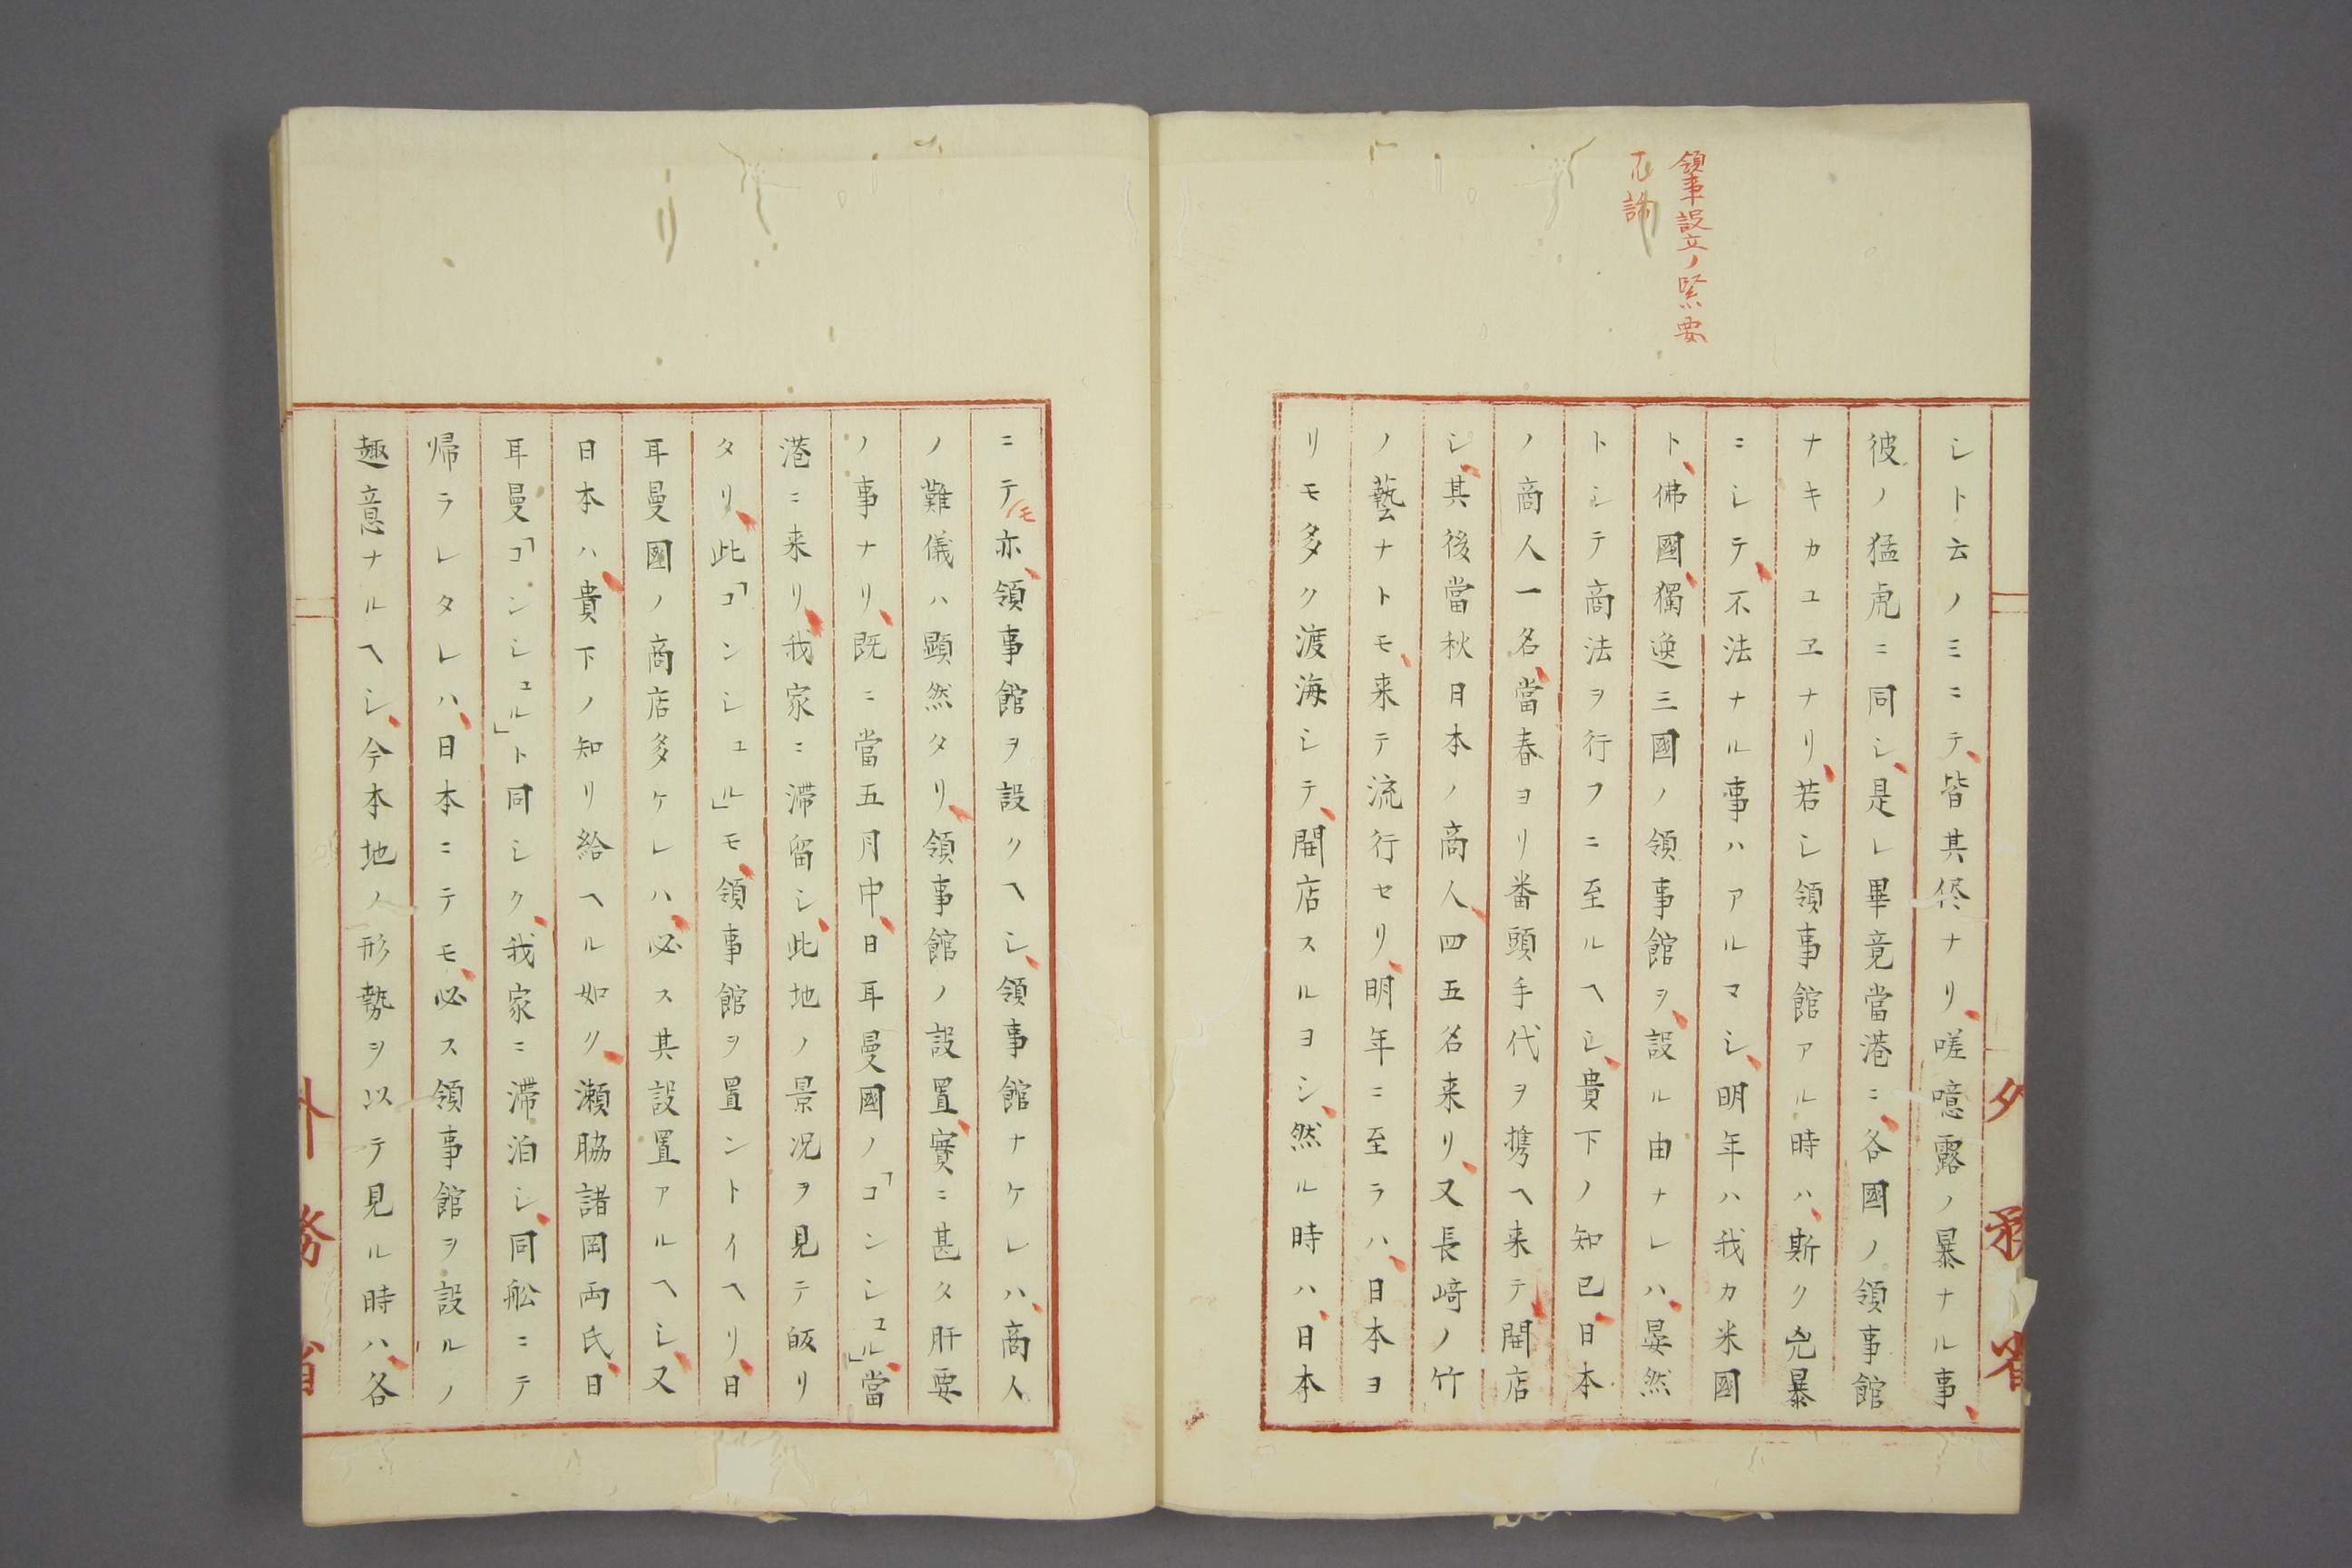 領事設立ノ緊要
ナル論
シト云ノミニテ、皆其侭ナリ、嗟噫露ノ暴ナル事、
彼ノ猛虎ニ同シ、是レ畢竟當港ニ、各國ノ領事館
ナキカユヱナリ、若シ領事館アル時ハ、斯ク兇暴
ニシテ、不法ナル事ハアルマシ、明年ハ我カ米國
ト、佛國、獨逸三國ノ領事館ヲ、設ル由ナレハ、晏然
トシテ商法ヲ行フニ至ルヘシ、貴下ノ知己、日本
ノ商人一名、當春ヨリ番頭手代ヲ携ヘ来テ、開店
シ、其後當秋日本ノ商人、四五名来リ、又長﨑ノ竹
ノ藝ナトモ、来テ流行セリ、明年ニ至ラハ、日本ヨ
リモ多ク渡海シテ、開店スルヨシ、然ル時ハ、日本
ニテモ亦、領事館ヲ設クヘシ、領事館ナケレハ、商人
ノ難儀ハ顕然タリ、領事館ノ設置、實ニ甚タ肝要
ノ事ナリ、既ニ當五月中、日耳曼國ノ「コンシュル」、當
港ニ来リ、我家ニ滞留シ、此地ノ景况ヲ見テ皈リ
タリ、此「コンシュル」モ、領事館ヲ置ントイヘリ、日
耳曼國ノ商店多ケレハ、必ス其設置アルヘシ、又
日本ハ、貴下ノ知リ給ヘル如ク、瀬脇諸岡両氏、日
耳曼「コンシュル」ト同シク、我家ニ滞泊シ、同舩ニテ
帰ラレタレハ、日本ニテモ、必ス領事館ヲ設ルノ
趣意ナルヘシ、今本地ノ形勢ヲ以テ見ル時ハ、各
外務省